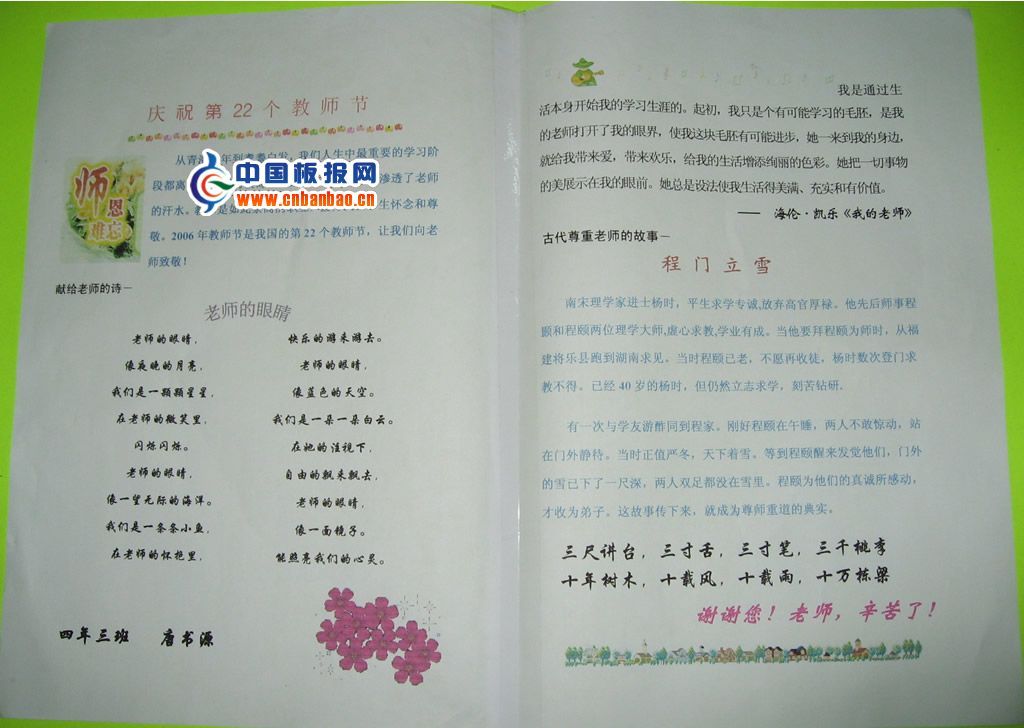 庆祝第22个教师节
中国板报网
www.cnbanbao.cn
师
恩
难忘
从青 年到 白发，我们人生中最重要的学习阶
段都离 渗透了老师
的汗水。 生怀念和尊
敬。2006年教师节是我国的第22个教师节，让我们向老
师致敬！
献给老师的诗—
老师的眼睛
老师的眼睛，
像夜晚的月亮，
我们是一颗颗星星，
在老师的微笑里，
闪烁闪烁。
老师的眼睛，
像一望无际的海洋。
我们是一条条小鱼，
在老师的怀抱里，
快乐的游来游去。
老师的眼睛，
像蓝色的天空。
我们是一朵一朵白云。
在她的注视下，
自由的飘来飘去，
老师的眼睛，
像一面镜子。
能照亮我们的心灵。
四年三班 唐书源
我是通过生
活本身开始我的学习生涯的。起初，我只是个有可能学习的毛胚，是我
的老师打开了我的眼界，使我这块毛胚有可能进步，她一来到我的身边，
就给我带来爱，带来欢乐，给我的生活增添绚丽的色彩。她把一切事物
的美展示在我的眼前。她总是设法使我生活得美满、充实和有价值。
—— 海伦·凯乐《我的老师》
古代尊重老师的故事—
程门立雪
南宋理学家进士杨时，平生求学专诚,放弃高官厚禄。他先后师事程
颐和程颐两位理学大师,虚心求教,学业有成。当他要拜程颐为师时，从福
建将乐县跑到湖南求见。当时程颐已老，不愿再收徒，杨时数次登门求
教不得。已经40岁的杨时，但仍然立志求学，刻苦钻研.
有一次与学友游酢同到程家。刚好程颐在午睡，两人不敢惊动，站
在门外静待。当时正值严冬，天下着雪。等到程颐醒来发觉他们，门外
的雪已下了一尺深，两人双足都没在雪里。程颐为他们的真诚所感动，
才收为弟子。这故事传下来，就成为尊师重道的典实。
三尺讲台，三寸舌，三寸笔，三千桃李
十年树木，十载风，十载雨，十万栋梁
谢谢您！老师，辛苦了！